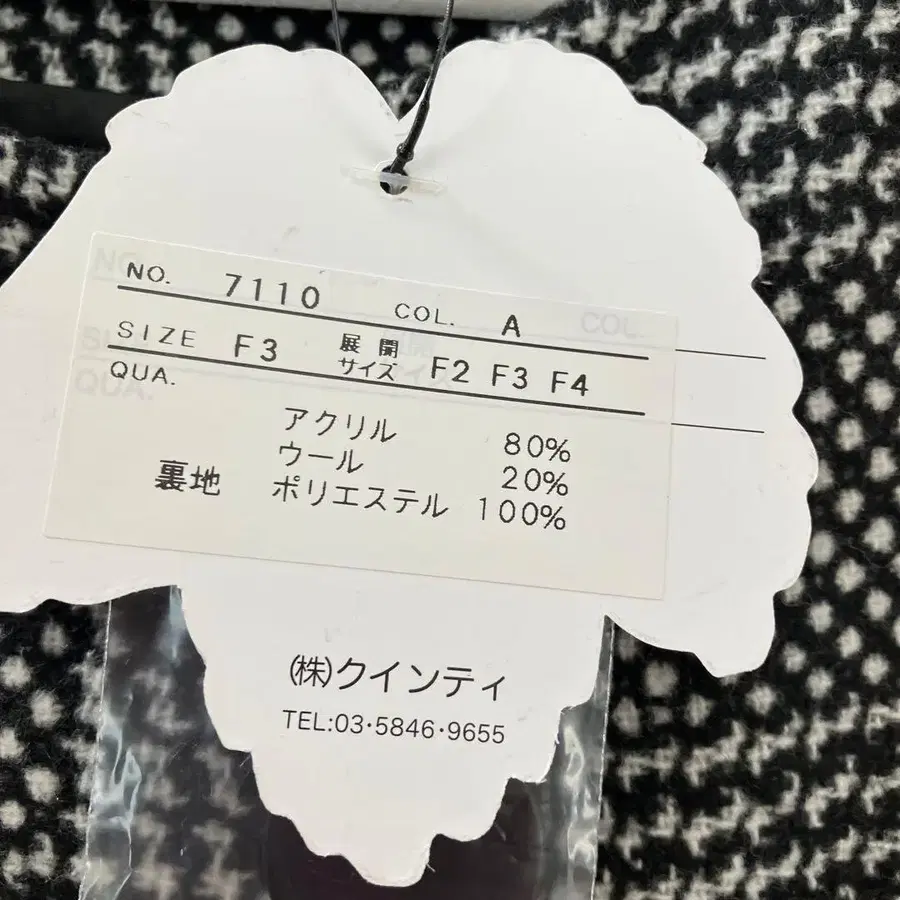 NO. 7110 COL. A
SIZE F3 展開サイズ F2 F3 F4
QUA.
アクリル 80%
ウール 20%
裏地 ポリエステル 100%
㈱クインティ
TEL:03・5846・9655